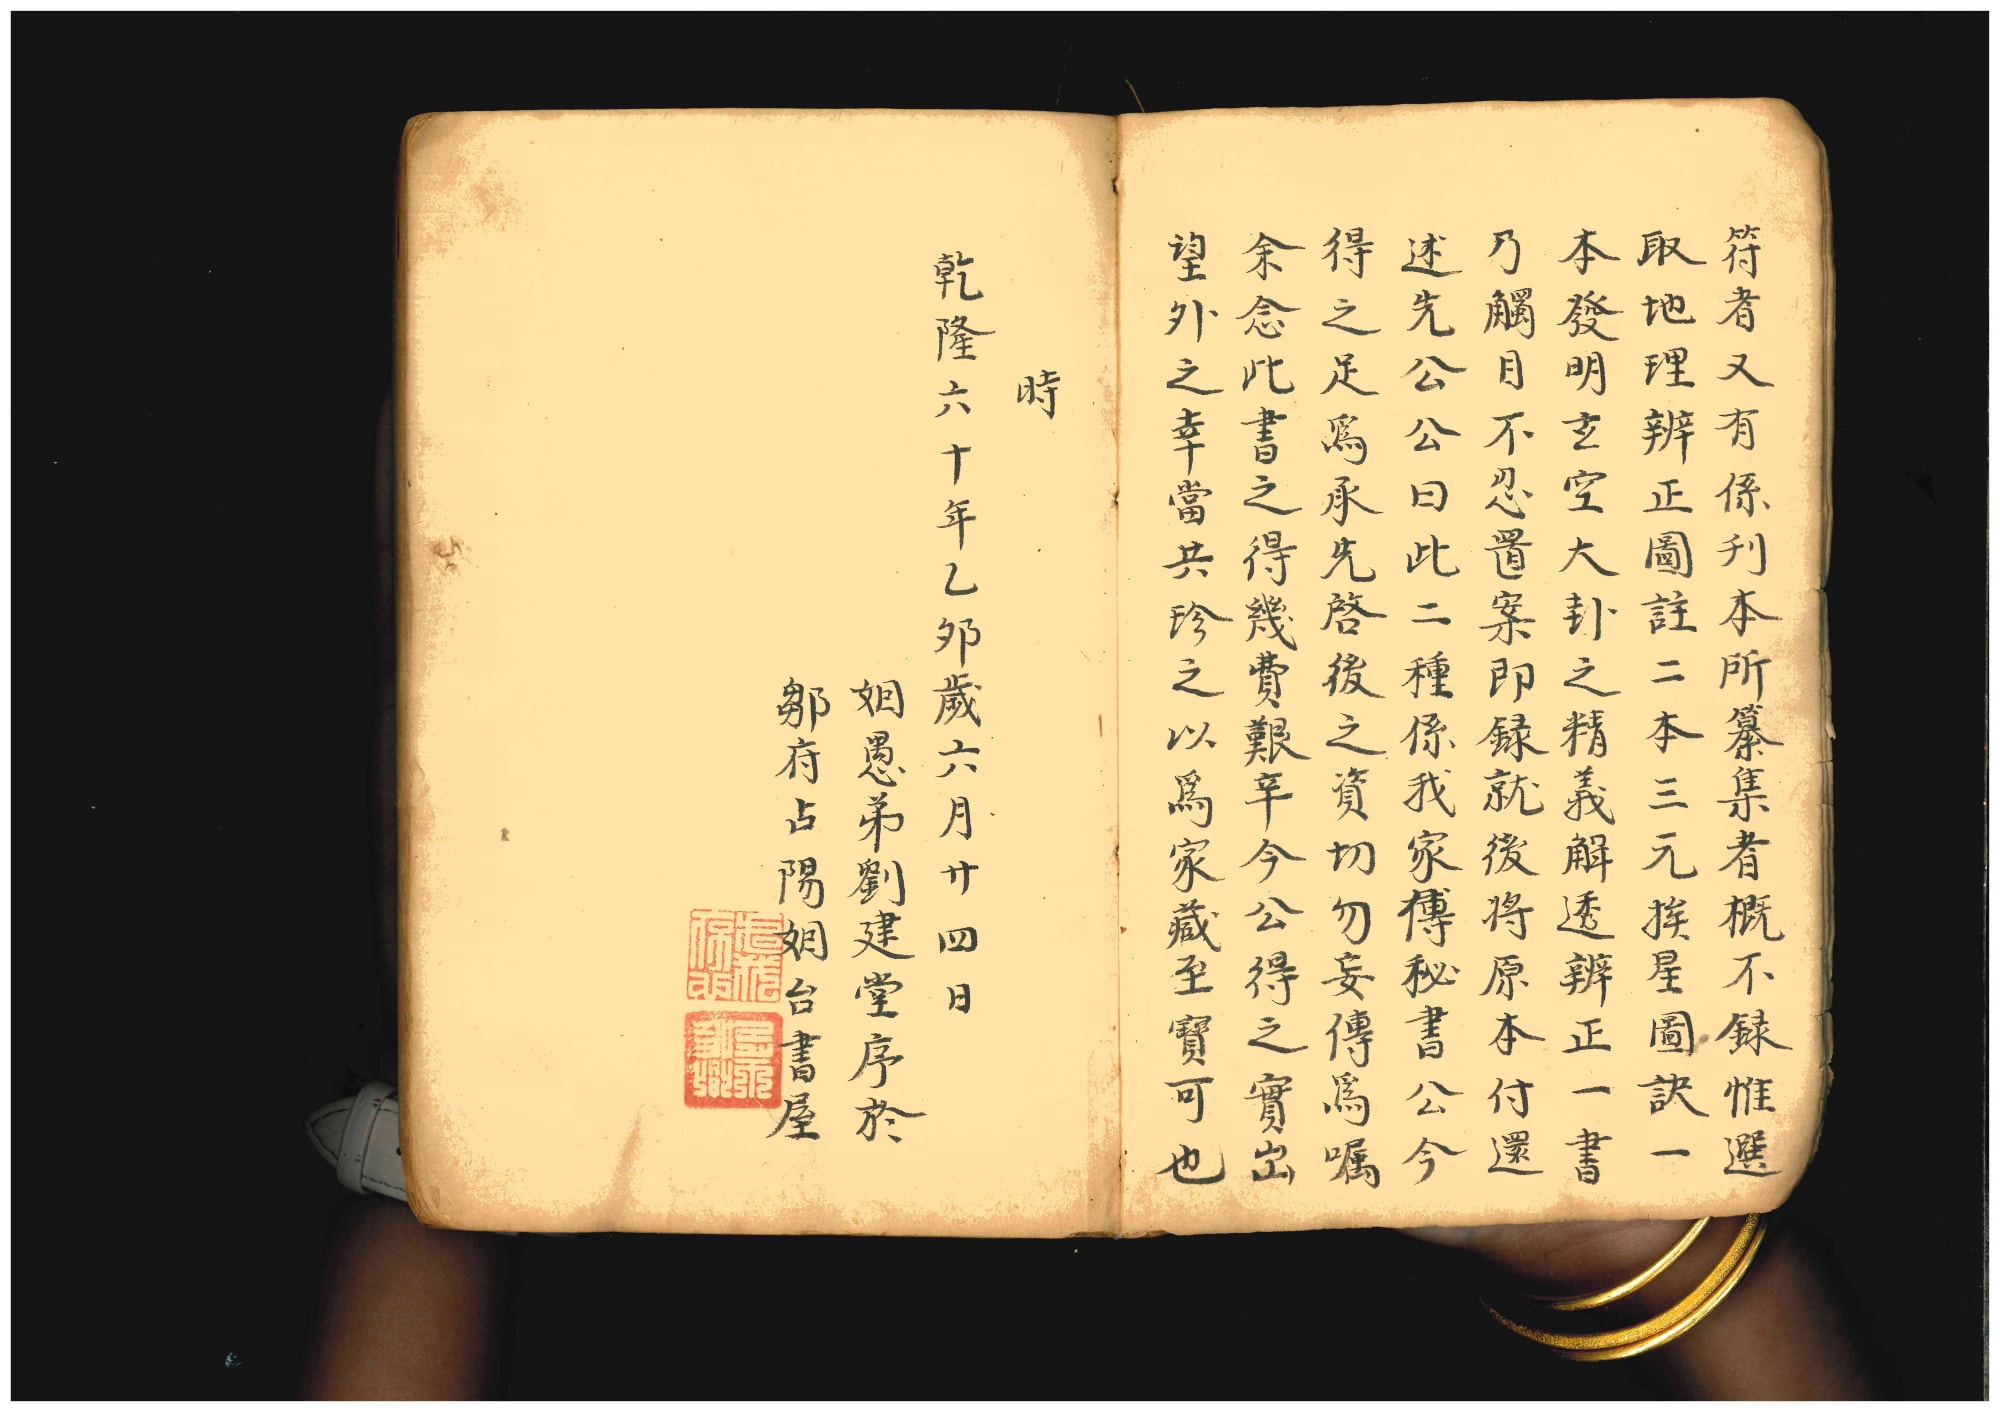 符者又有係刋本所纂集者概不録惟選
取地理辨正圖註二本三元挨星圖訣一
本發明玄空大卦之精義解透辨正一書
乃觸目不忍置案即録就後將原本付還
述先公公曰此二種係我家傳秘書公今
得之足為承先啓後之資切勿妄傳為嘱
余念此書之得幾費艱辛今公得之實出
望外之幸當共珍之以為家藏至寶可也
時
乾隆六十年乙夘歲六月廿四日
姻愚弟劉建堂序於
鄒府占陽姻台書屋